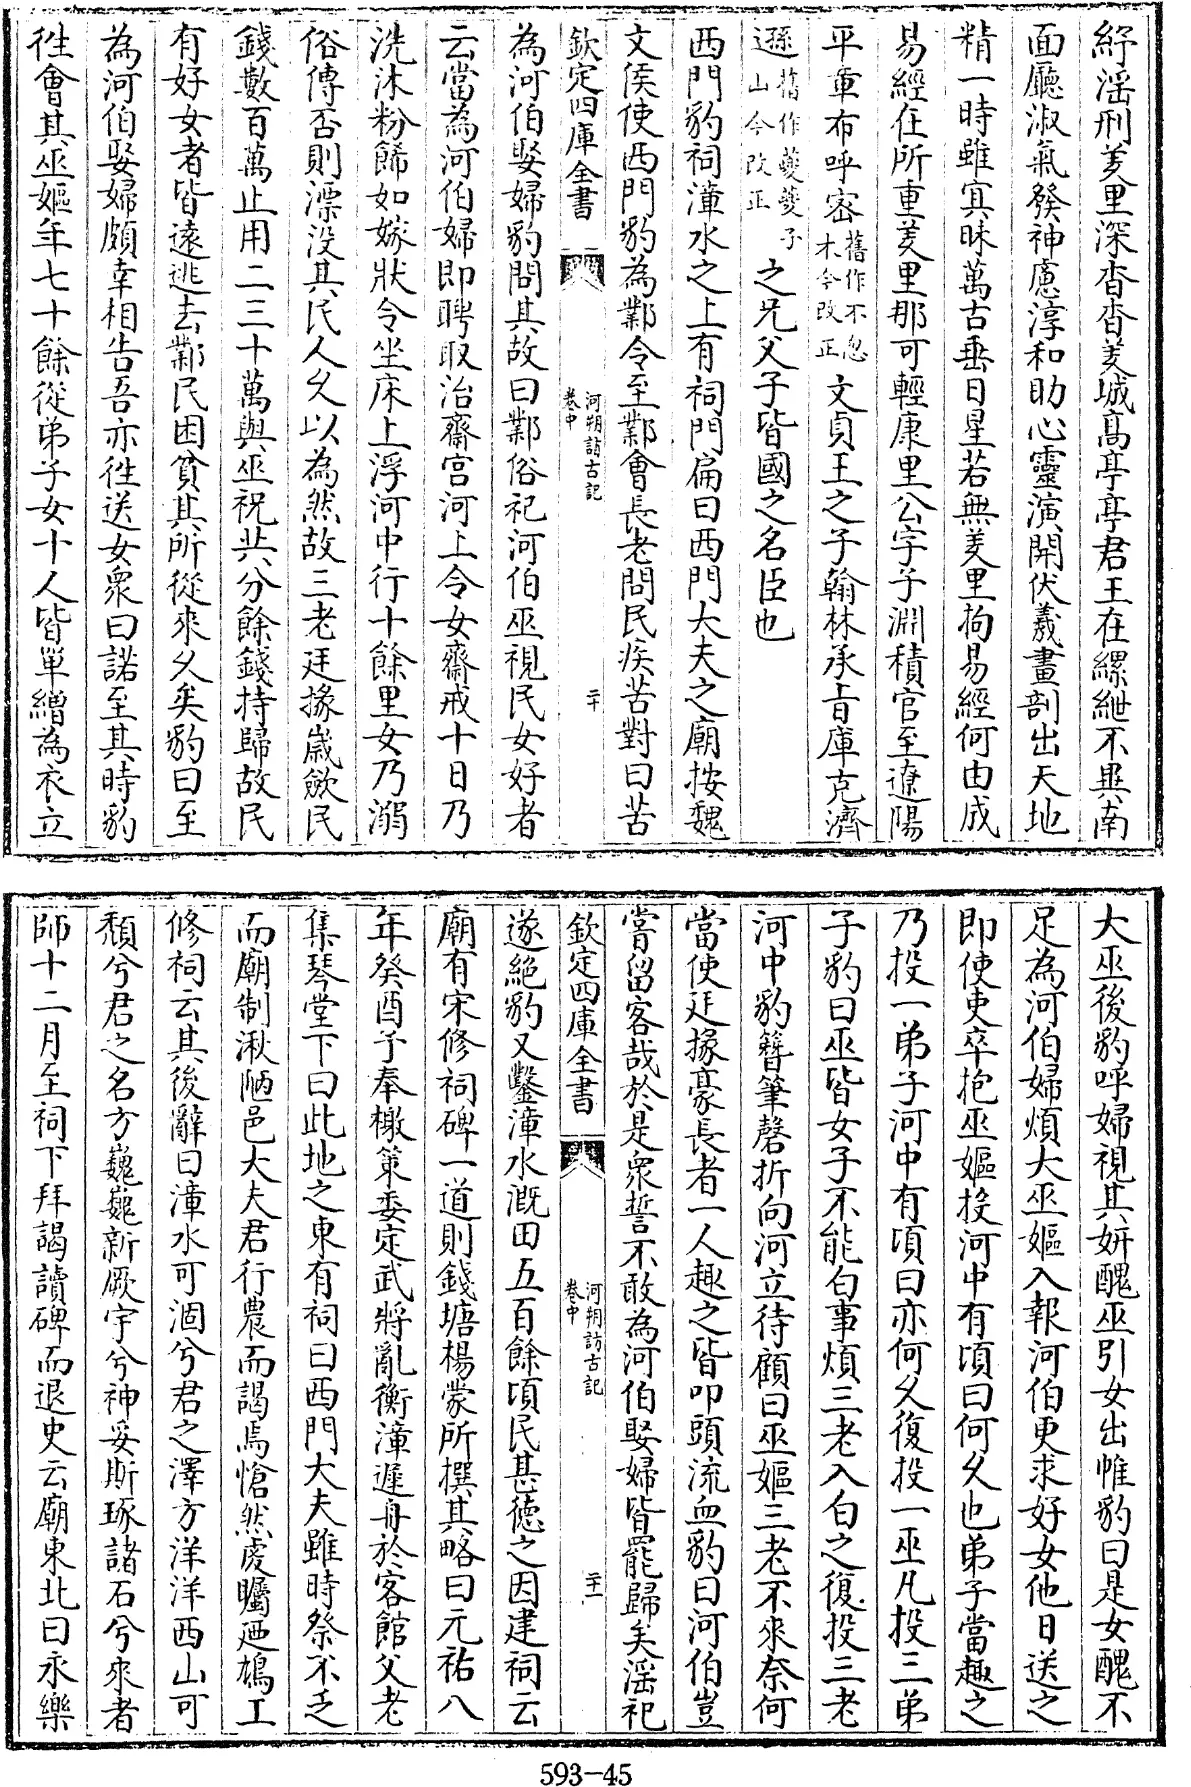 紓滛刑羑里深杳杳羑城髙亭亭君王在縲紲不異南
面廳淑氣發神慮淳和助心靈演開伏羲畫剖出天地
精一時雖㝠昧萬古垂日星若無羑里拘易經何由成
易經在所重羑里那可輕康里公字子淵積官至遼陽
平章布呼宻舊作不忽木今改正文貞王之子翰林承㫖庫克濟
遜舊作䕫䕫子山今改正之兄父子皆國之名臣也
西門豹祠漳水之上有祠門扁曰西門大夫之廟按魏
文侯使西門豹為鄴令至鄴會長老問民疾苦對曰苦
欽定四庫全書
河朔訪古記
卷中
二十
為河伯娶婦豹問其故曰鄴俗祀河伯巫視民女好者
云當為河伯婦即聘取治齋宫河上令女齋戒十日乃
洗沐粉餙如嫁狀令坐床上浮河中行十餘里女乃溺
俗傳否則漂没其民人乆以為然故三老廷掾嵗斂民
錢數百萬止用二三十萬與巫祝共分餘錢持歸故民
有好女者皆遠逃去鄴民困貧其所從來乆矣豹曰至
為河伯娶婦頗幸相告吾亦徃送女衆曰諾至其時豹
徃會其巫嫗年七十餘從弟子女十人皆單繒為衣立
大巫後豹呼婦視其妍醜巫引女出帷豹曰是女醜不
足為河伯婦煩大巫嫗入報河伯更求好女他日送之
即使吏卒抱巫嫗投河中有頃曰何乆也弟子當趣之
乃投一弟子河中有頃曰亦何乆復投一巫凡投三弟
子豹曰巫皆女子不能白事煩三老入白之復投三老
河中豹簪筆磬折向河立待顧曰巫嫗三老不來奈何
當使廷掾豪長者一人趣之皆叩頭流血豹曰河伯豈
嘗留客哉於是衆誓不敢為河伯娶婦皆罷歸矣滛祀
欽定四庫全書
河朔訪古記
卷中
二十一
遂絶豹又鑿漳水溉田五百餘頃民甚德之因建祠云
廟有宋修祠碑一道則錢塘楊蒙所撰其略曰元祐八
年癸酉予奉檄䇿委定武將亂衡漳遲舟於客館父老
集琴堂下曰此地之東有祠曰西門大夫雖時祭不乏
而廟制湫陋邑大夫君行農而謁焉愴然䖍矚廼鳩工
修祠云其後辭曰漳水可涸兮君之澤方洋洋西山可
頺兮君之名方巍巍新厥宇兮神妥斯琢諸石兮來者
師十二月至祠下拜謁讀碑而退史云廟東北曰永樂
593-45